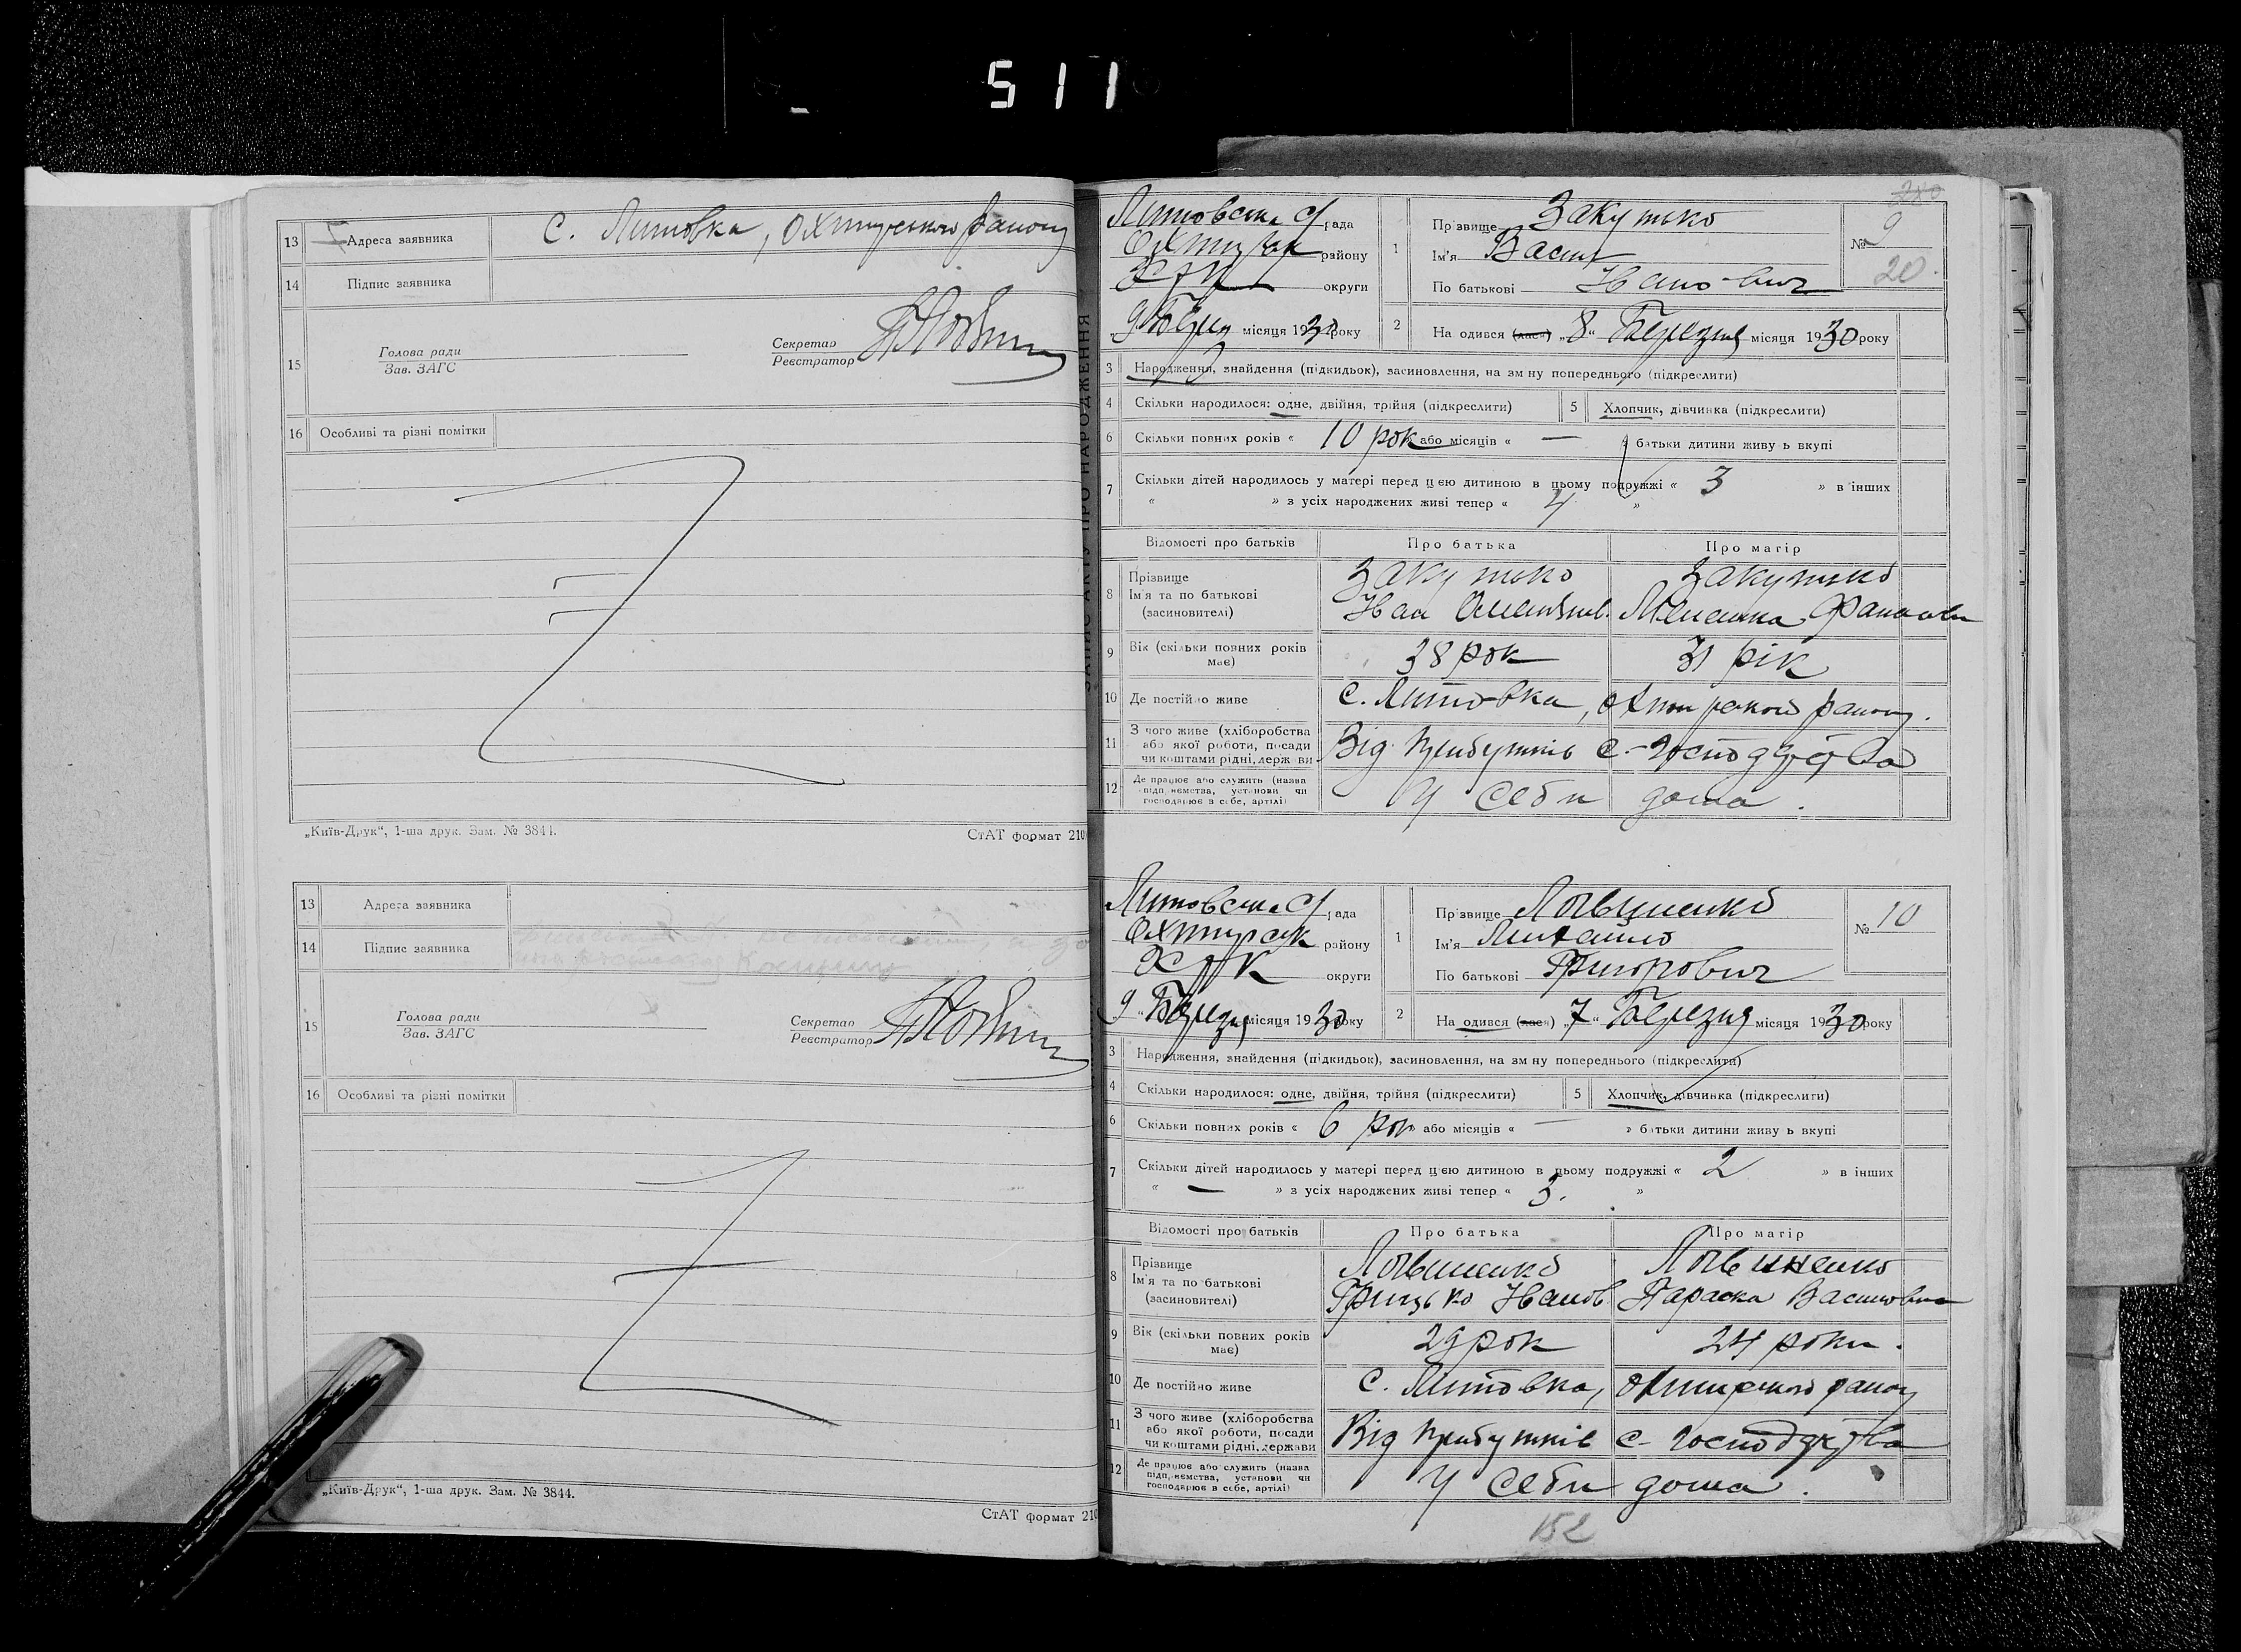 511
13 Адреса заявника с. Литовка, Охтирського району
14 Підпис заявника
15 Голова ради
Зав. ЗАГС
Секретар
Реєстратор
16 Особливі та різні помітки
„Київ-Друк“, 1-ша друк. Зам. № 3844.
СтАТ формат 210
13 Адреса заявника
14 Підпис заявника
15 Голова ради
Зав. ЗАГС
Секретар
Реєстратор
16 Особливі та різні помітки
„Київ-Друк“, 1-ша друк. Зам. № 3844.
СтАТ формат 210
ЗАПИС АКТУ ПРО НАРОДЖЕННЯ
Литовська С/рада
Охтирськ району
округи
„9“ Берез місяця 1930 року
1 Прізвище Закутько
Ім'я Василь
По батькові Іванович
№ 9
20
2 На одився (лася) „8“ Березня місяця 1930 року
3 Народження, знайдення (підкидьок), засиновлення, на зміну попереднього (підкреслити)
4 Скільки народилося: одне, двійня, трійня (підкреслити)
5 Хлопчик, дівчинка (підкреслити)
6 Скільки повних років « 10 рок або місяців « — » батьки дитини живуть вкупі
7 Скільки дітей народилось у матері перед цією дитиною в цьому подружжі « 3 » в інших
« » з усіх народжених живі тепер « 4 »
Відомості про батьків Про батька Про матір
8 Прізвище
Ім'я та по батькові
(засиновителі)
Закутько
Іван
Закутько
9 Вік (скільки повних років має) 38 рок 31 рік
10 Де постійно живе с. Литовка, Охтирського району.
11 З чого живе (хліборобства
або якої роботи, посади
чи коштами рідні, держави
Від прибутків с.-господарства
12 Де працює або служить (назва
підприємства, установи чи
господарює в себе, артілі)
У себи дома.
Литовська С/рада
Охтирськ району
округи
„9“ Березня місяця 1930 року
1 Прізвище Логвиненко
Ім'я Михайло
По батькові Григорович
№ 10
2 На одився (лася) „7“ Березня місяця 1930 року
3 Народження, знайдення (підкидьок), засиновлення, на зміну попереднього (підкреслити)
4 Скільки народилося: одне, двійня, трійня (підкреслити)
5 Хлопчик, дівчинка (підкреслити)
6 Скільки повних років « 6 рок » або місяців « — » батьки дитини живуть вкупі
7 Скільки дітей народилось у матері перед цією дитиною в цьому подружжі « 2 » в інших
« — » з усіх народжених живі тепер « 3. »
Відомості про батьків Про батька Про матір
8 Прізвище
Ім'я та по батькові
(засиновителі)
Логвиненко
Грицько Іванов.
Логвиненко
Параска Василовна
9 Вік (скільки повних років має) 29 рок 24 роки.
10 Де постійно живе с. Литовка, Охтирського району
11 З чого живе (хліборобства
або якої роботи, посади
чи коштами рідні, держави
Від прибутків с-господарства
12 Де працює або служить (назва
підприємства, установи чи
господарює в себе, артілі)
У себи дома.
152